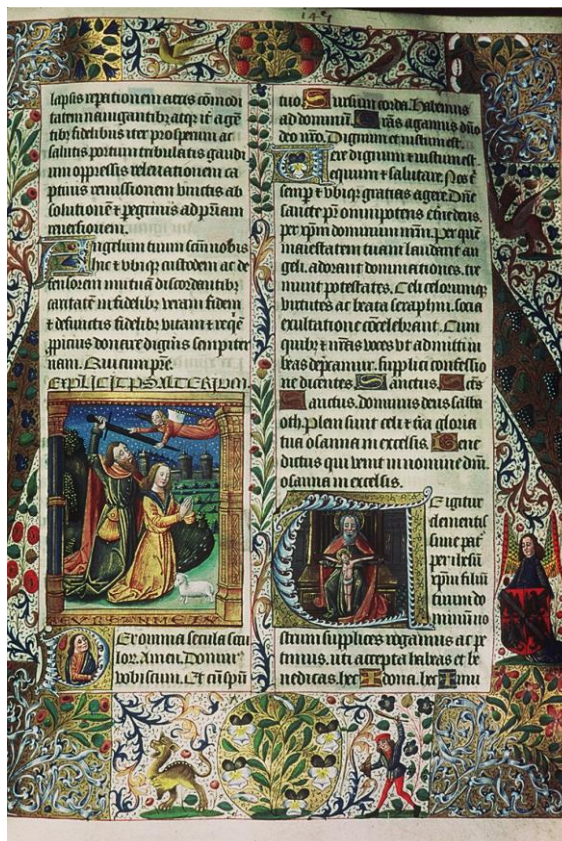 lapsis repationem aeris cōmodi
tatem nauigantibʒ atqʒ it̄ agē
tibʒ fidelibus iter prosperum ac
salutis portum tribulatis gaudi
um oppressis releuationem ca
ptiuis remissionem vinctis ab
solutionē ⁊ pegrinis ad pr̄iam
reuersionem.
Angelum tuum scm̄ nobis
hic ⁊ vbiqʒ custodem ac de
fensorem mutuā discordantibʒ
caritatē infidelibʒ veram fidem
⁊ defunctis fidelibʒ vitam ⁊ reqē
ꝓpicius donare digneris sempiter
nam. Qui cum pr̄e.
EXPLICIT PSALTERIVM
Per omnia secula secu
lor. Amen. Domin'
vobiscum. Et cū spū
tuo. Sursum corda. Habemus
ad dominū. Grās agamus dn̄o
deo nr̄o. Dignum et iustum est.
Vere dignum ⁊ iustum est.
equum ⁊ salutare. Nos t'
semp ⁊ vbiqʒ gratias agere. Dn̄e
sancte pr̄ omnipotens et̄ne deus.
per xp̄m dominum nr̄m. Per quē
maiestatem tuam laudant an
geli. adorant dominationes. tre
munt potestates. Celi celorumqʒ
virtutes ac beata seraphin. socia
exultatione cōcelebrant. Cum
quibʒ ⁊ nr̄as voces vt admitti iu
beas dep̄camur. supplici confessio
ne dicentes. Sanctus. Sc̄s
Sanctus. dominus deus saba
oth. Pleni sunt celi ⁊ t̄ra gloria
tua osanna in excelsis. Bene
dictus qui venit in nomine dn̄i.
osanna in excelsis.
Te igitur
clementis
sime pat̄
per ihesū
xp̄m filiū
tuum do
minum no
strum supplices rogamus ac pe
timus. uti accepta habeas et be
nedicas. hec dona. hec mu